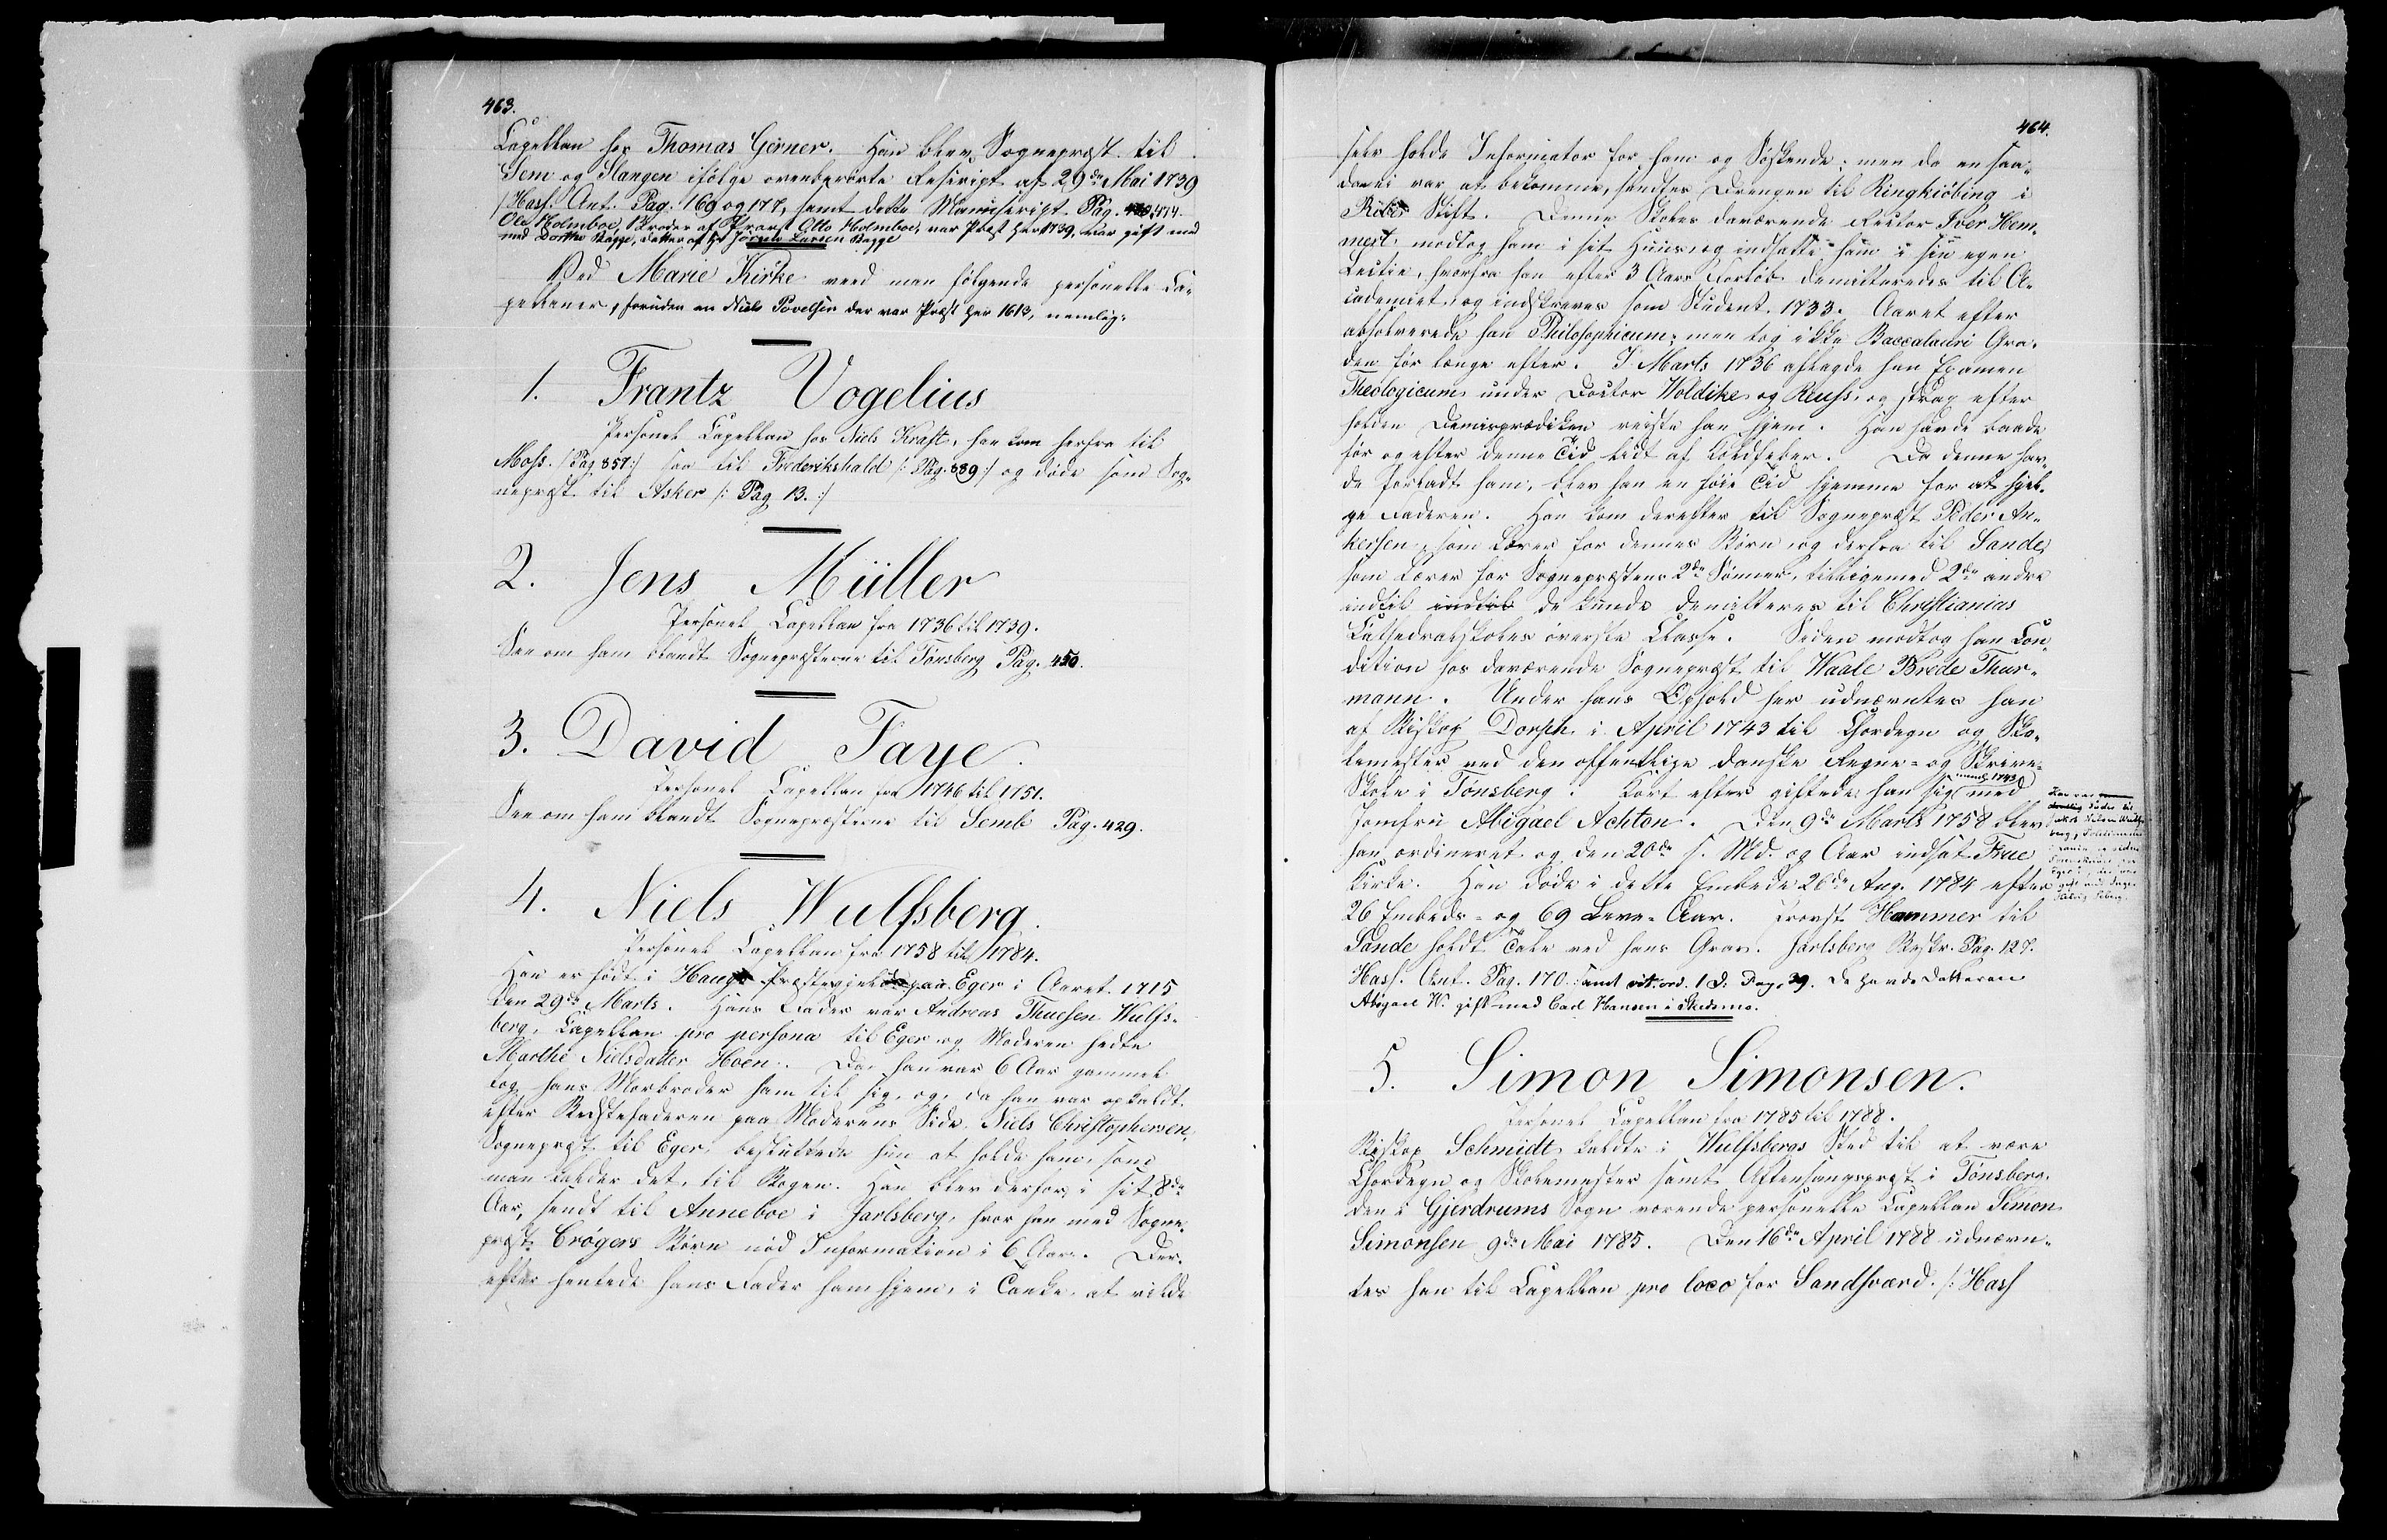 463.
Capellan hos Thomas Gerner. Han blev Sognepræst til
Sem og Slangen ifølge ovenberørte Rescript af 29de Mai 1739
/Hass. Ant. Pag. 169 og 177, samt dette Manuscript Pag. 414.
Ole Holmboe, Broder af Provst Otto Holmboe, var Præst her 1739, var gift med
med Dorthe Bagge, Datter af Hr Jørgen Larsen Bagge
Ved Marie Kirke veed man følgende personelle Ca-
pellaner, foruden en Niels Povelsen der var Præst her 1613, nemlig:
1. Frantz Vogelius
Personel Capellan hos Niels Kraft, han kom herfra til
Moss. /: Pag 857:/ saa til Frederikshald /: Pag. 889:/ og døde som Sog-
nepræst til Asker /: Pag 13. :/
2. Jens Müller
Personel Capellan fra 1736 til 1739.
See om ham blandt Sognepræsterne til Tønsberg Pag. 450.
3. David Faye.
Personel Capellan fra 1746 til 1751.
See om ham blandt Sognepræsterne til Semb Pag. 429.
4. Niels Wulfsberg.
Personel Capellan fra 1758 til 1784.
Han er født i Haugs Præstegjeld paa Eger i Aaret 1715
den 29de Marts. Hans Fader var Andreas Thuesen Wulfs-
berg, Capellan pro persona til Eger og Moderen hedte
Marthe Nielsdatter Hoen. Da han var 6 Aar gammel
tog hans Morbroder ham til sig, og, da han var opkaldt
efter Bedstefaderen paa Moderens Side Niels Christophersen,
Sognepræst til Eger, besluttede hun at holde ham, som
man kalder det, til Bogen. Han blev derfor, i sit 8de
Aar, sendt til Anneboe i Jarlsberg, hvor han med Sogne-
præst Crøgers Børn nød Information i 6 Aar. Der-
efter hentede hans Fader ham hjem, i Tanke, at vilde
464.
selv holde Informator for ham og Søskende; men da en saa-
dan ei var at bekomme, sendtes Drengen til Ringkiøbing i
Ribes Stift. Denne Skoles daværende Rector Iver Hem-
mert modtog ham i sit Huus, og indsatte ham i sin egen
Lectie, hvorfra han efter 3 Aars Forløb demitteredes til A-
cademiet, og indskreves som Student 1733. Aaret efter
absolverede han Philosophicum; men tog ikke Baccalauri Gra-
den før længe efter. I Marts 1736 aflagde han Examen
Theologicum under Doctor Woldike og Reuss, og strax efter
holden Demisprædiken reiste han hjem. Han havde baade
før og efter denne Tid lidt af Koldfeber. Da denne hav-
de forladt ham, blev han en føie Tid hjemme for at hjel-
pe Faderen. Han kom derefter til Sognepræst Peder An-
kersen, som Lærer for dennes Børn, og derfra til Sande,
som Lærer for Sognepræstens 2de Sønner, tilligemed 2de andre
indtil indtil de kunde demitteres til Christianias
Cathedralskoles øverste Classe. Siden modtog han Con-
dition hos daværende Sognepræst til Waale Brede Thur-
mann. Under hans Ophold her udnævntes han
af Biskop Dorph i April 1743 til Chordegn og Sko-
lemester ved den offentlige danske Regne- og Skrive-
Skole i Tønsberg. Kort efter giftede han sig med
1743
Jomfru Abigael Achton. Den 9de Marts 1758 blev
han ordineret og den 20de s. Md. og Aar indsat Frue
Kirke. Han døde i dette Embede 26de Aug. 1784 efter
26 Embeds- og 69 Leve-Aar. Provst Hammer til
Sande holdt Tale ved hans Grav. Jarlsberg Beskr. Pag. 127.
Hass. Ant. Pag. 170. samt vit. ord. 1 D. Pag. 39. De havde Datteren
Abigael W. gift med Carl Hansen i Skedsmo.
Han var
Fader til
Jakob Nielsen Wulfs-
berg,
5. Simon Simonsen.
Personel Capellan fra 1785 til 1788.
Biskop Schmidt kaldte i Wulfsbergs Sted til at være
Chordegn og Skolemester samt Aftensangspræst i Tønsberg,
den i Gjerdrums Sogn værende personelle Capellan Simon
Simonsen 9de Mai 1785. Den 16de April 1788 udnævn-
tes han til Capellan pro loco for Sandsværd. /: Hass